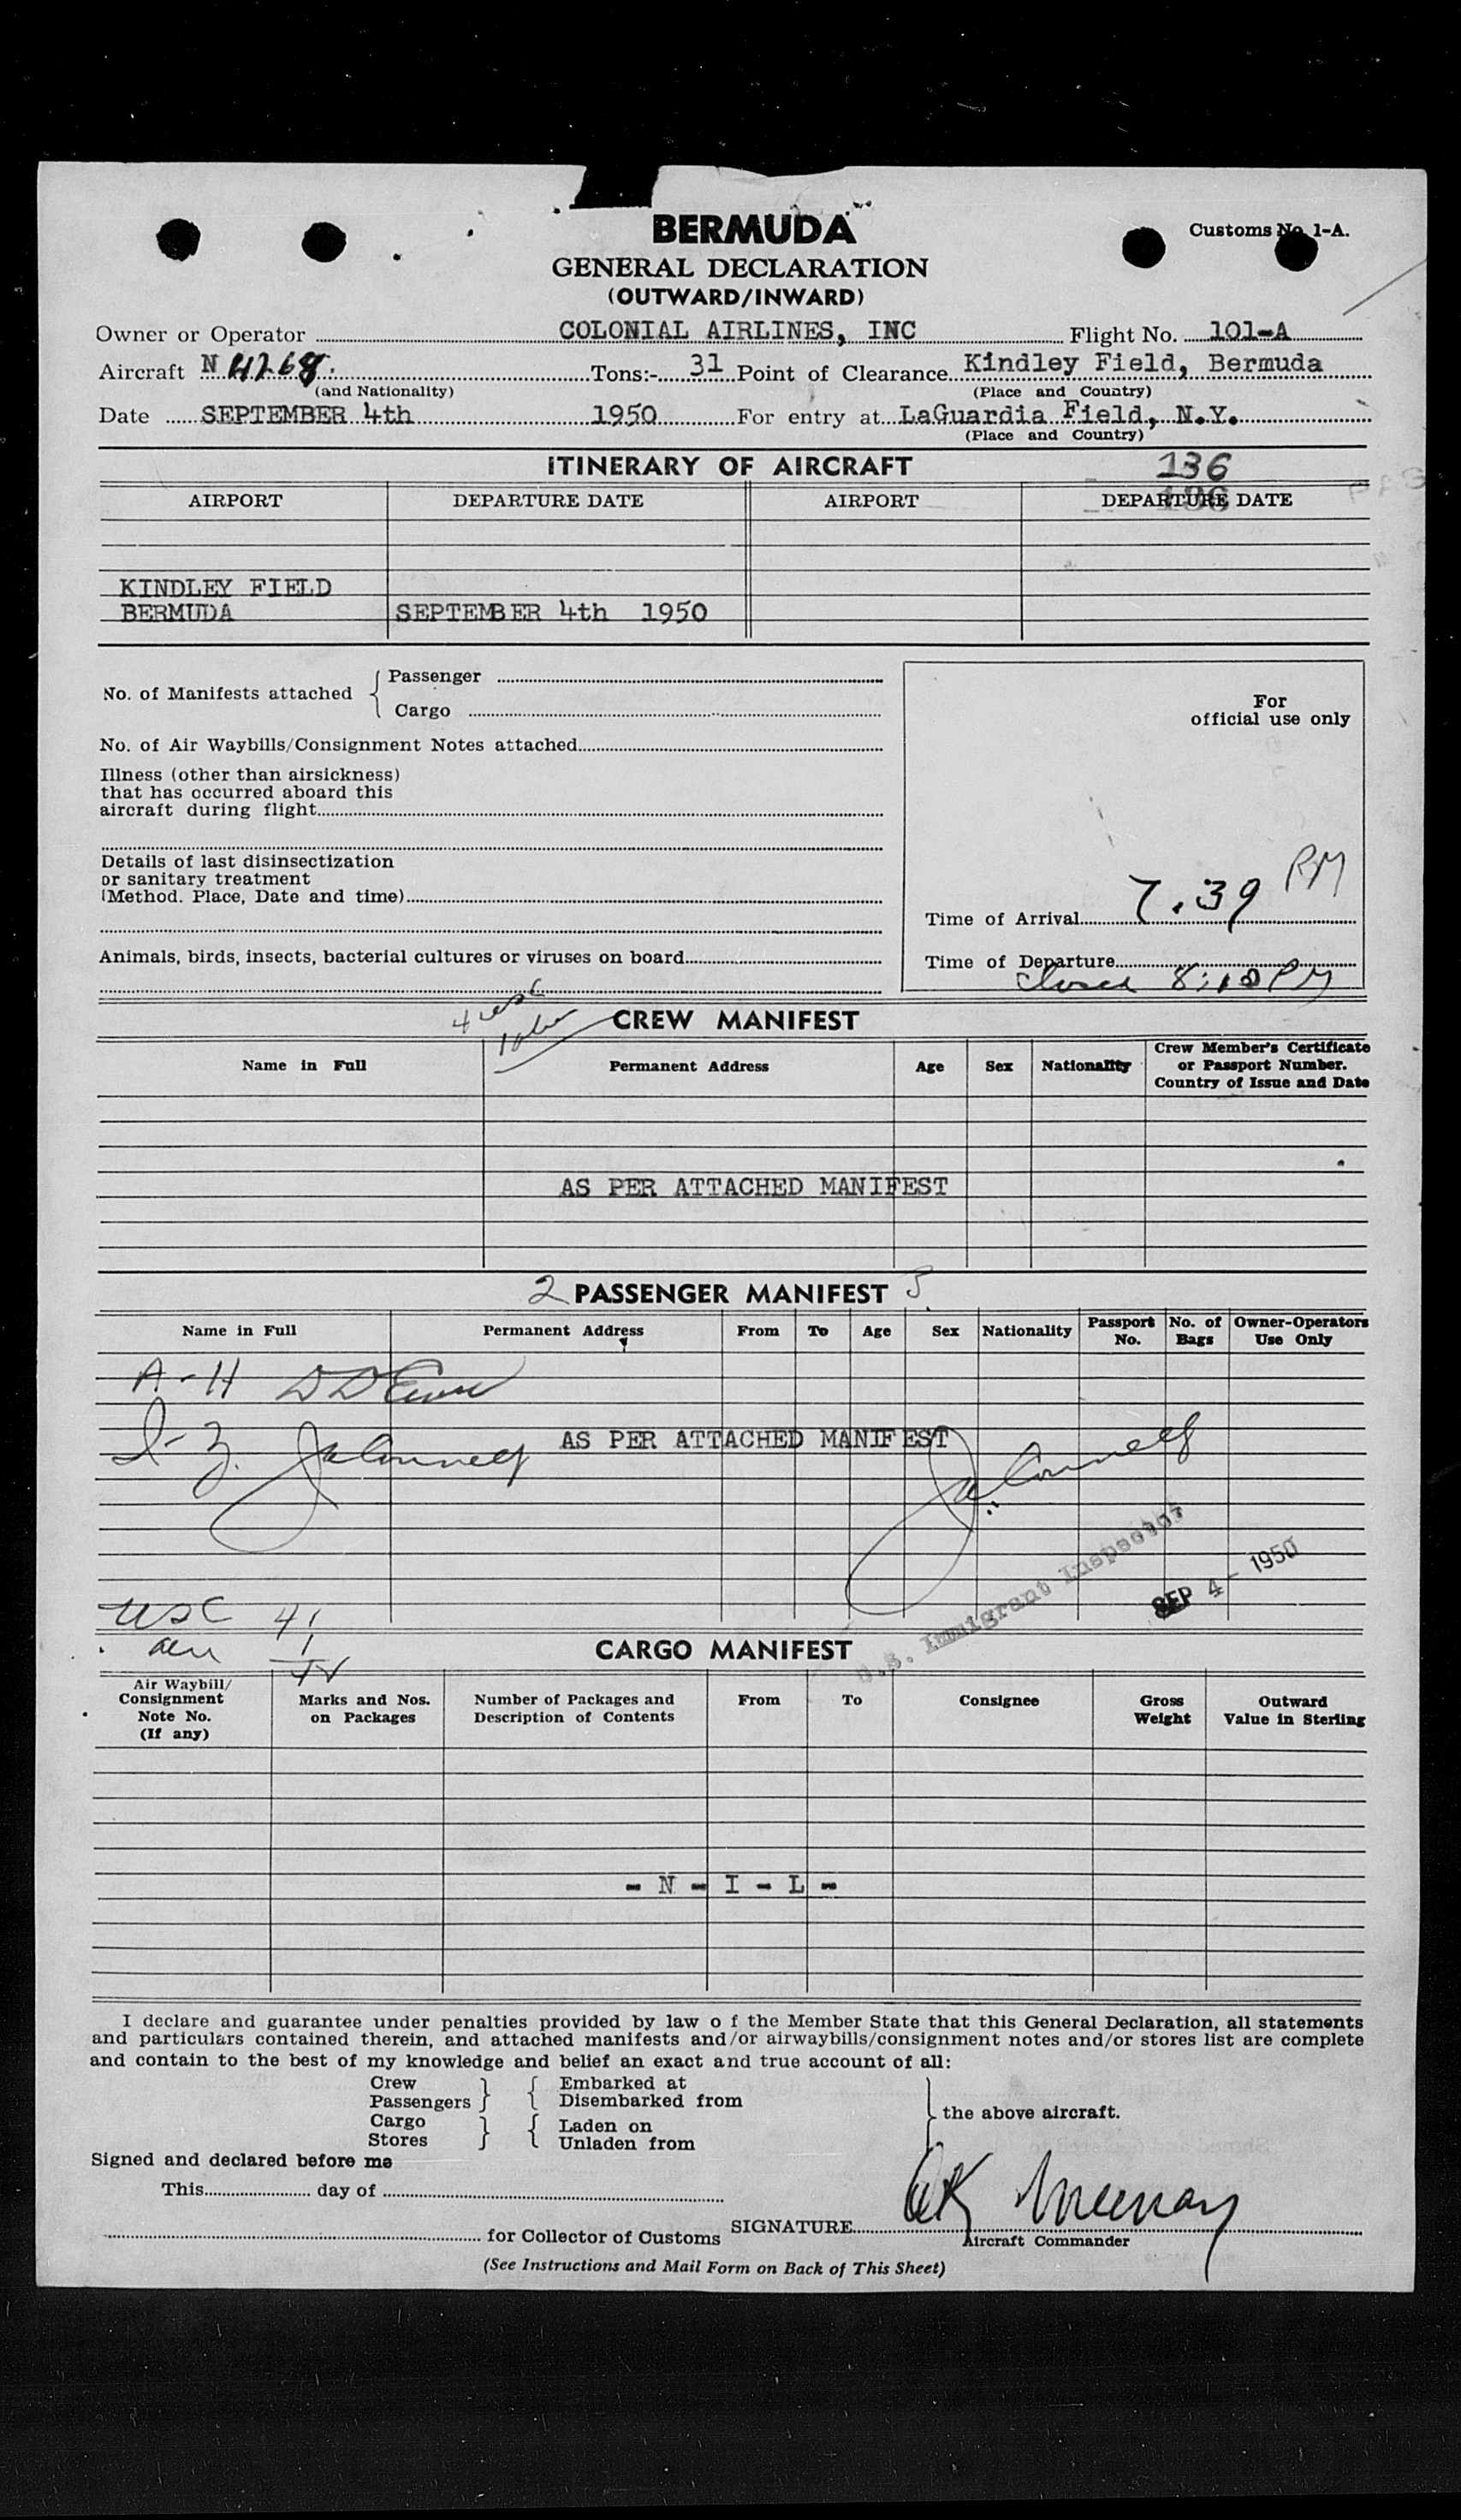 BERMUDA
Customs No. 1-A.
GENERAL DECLARATION
(OUTWARD/INWARD)
Owner or Operator COLONIAL AIRLINES, INC Flight No. 101-A
Aircraft N Tons:- 31 Point of Clearance Kindley Field, Bermuda
(and Nationality) (Place and Country)
Date SEPTEMBER 4th 1950 For entry at LaGuardia Field, N.Y.
(Place and Country)
ITINERARY OF AIRCRAFT 136
AIRPORT DEPARTURE DATE AIRPORT DEPARTURE DATE
136
KINDLEY FIELD
BERMUDA SEPTEMBER 4th 1950
No. of Manifests attached { Passenger
Cargo
For
official use only
No. of Air Waybills/Consignment Notes attached
Illness (other than airsickness)
that has occurred aboard this
aircraft during flight
Details of last disinsectization
or sanitary treatment
(Method. Place, Date and time)
Time of Arrival 7.39 PM
Animals, birds, insects, bacterial cultures or viruses on board
Time of Departure
closed 8:10 PM
CREW MANIFEST
Name in Full Permanent Address Age Sex Nationality Crew Member's Certificate
or Passport Number.
Country of Issue and Date
AS PER ATTACHED MANIFEST
2 PASSENGER MANIFEST
Name in Full Permanent Address From To Age Sex Nationality Passport No. No. of Bags Owner-Operators Use Only
A-H
I-Z.
AS PER ATTACHED MANIFEST
U.S. Immigrant Inspector
SEP 4- 1950
USC 41
CARGO MANIFEST
Air Waybill/
Consignment
Note No.
(If any)
Marks and Nos.
on Packages
Number of Packages and
Description of Contents
From To Consignee
Gross
Weight
Outward
Value in Sterling
- N - I - L -
I declare and guarantee under penalties provided by law o f the Member State that this General Declaration, all statements
and particulars contained therein, and attached manifests and/or airwaybills/consignment notes and/or stores list are complete
and contain to the best of my knowledge and belief an exact and true account of all:
Crew } { Embarked at
Passengers } { Disembarked from
} the above aircraft.
Cargo } { Laden on
Stores } { Unladen from
Signed and declared before me
This day of
for Collector of Customs SIGNATURE
Aircraft Commander
(See Instructions and Mail Form on Back of This Sheet)